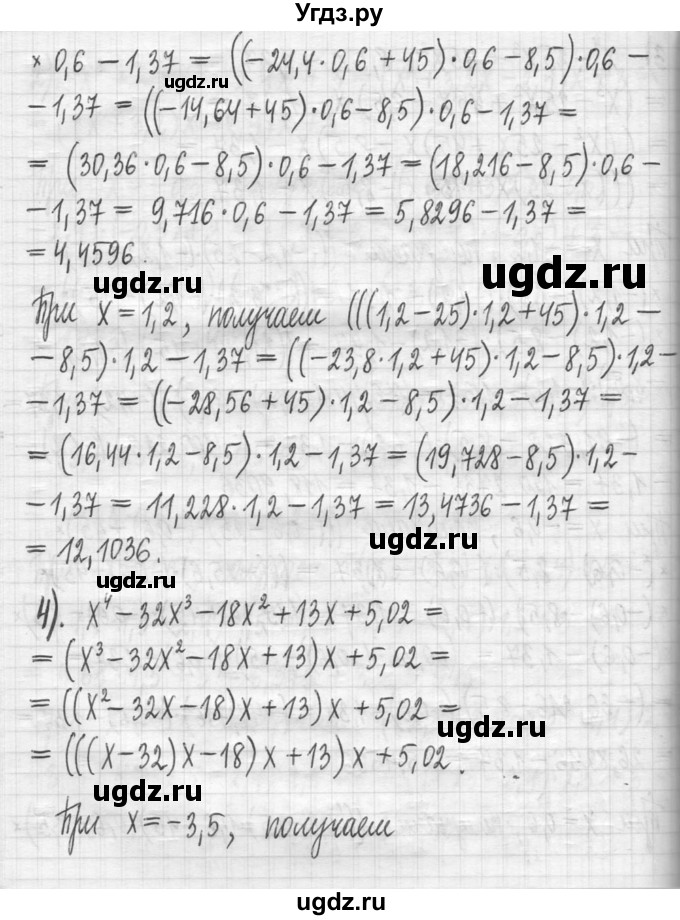 Угдз.ру
× 0,6 − 1,37 = ((−24,4·0,6 + 45)·0,6 − 8,5)·0,6 −
ugdz.ru
− 1,37 = ((−14,64 + 45)·0,6 − 8,5)·0,6 − 1,37 =
= (30,36·0,6 − 8,5)·0,6 − 1,37 = (18,216 − 8,5)·0,6 −
− 1,37 = 9,716·0,6 − 1,37 = 5,8296 − 1,37 =
= 4,4596.
ugdz.ru ugdz.ru
При x = 1,2, получаем (((1,2 − 25)·1,2 + 45)·1,2 −
− 8,5)·1,2 − 1,37 = ((−23,8·1,2 + 45)·1,2 − 8,5)·1,2 −
− 1,37 = ((−28,56 + 45)·1,2 − 8,5)·1,2 − 1,37 =
= (16,44·1,2 − 8,5)·1,2 − 1,37 = (19,728 − 8,5)·1,2 −
− 1,37 = 11,228·1,2 − 1,37 = 13,4736 − 1,37 =
= 12,1036.
ugdz.ru
ugdz.ru
4). x⁴ − 32x³ − 18x² + 13x + 5,02 =
= (x³ − 32x² − 18x + 13)x + 5,02 =
= ((x² − 32x − 18)x + 13)x + 5,02 =
ugdz.ru
= (((x − 32)x − 18)x + 13)x + 5,02.
ugdz.ru
При x = −3,5, получаем
ugdz.ru